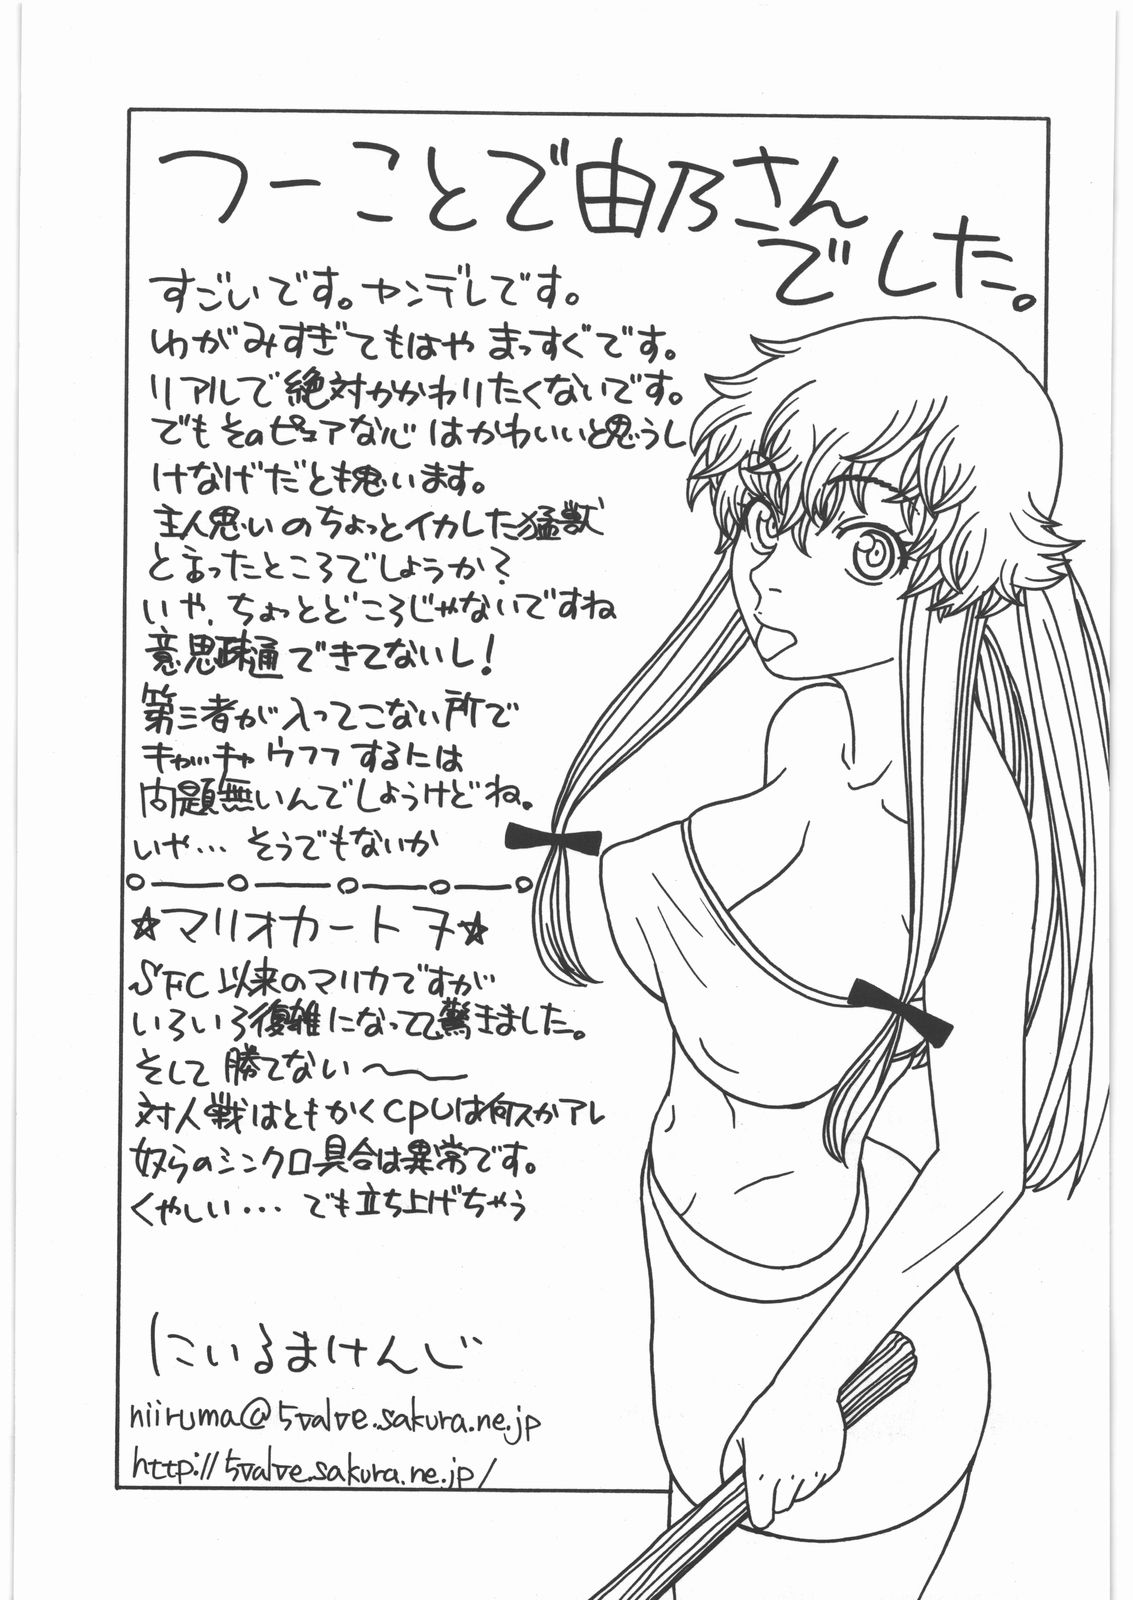 つーことで由乃さん
でした。
すごいです。ヤンデレです。
ゆがみすぎてもはや まっすぐです。
リアルで絶対かかわりたくないです。
でもそのピュアな心 はかわいいと思うし
けなげだとも思います。
主人思いのちょっとイカした猛獣
といったところでしょうか?
いや、ちょっとどころじゃないですね
意思疎通できてないし!
第三者が入ってこない所で
キャッキャウフフするには
問題無いんでしょうけどね。
いや… そうでもないか
☆マリオカート7☆
SFC以来のマリカですが
いろいろ複雑になってて驚きました。
そして勝てない〜
対人戦はともかくCPUは何スかアレ
奴らのシンクロ具合は異常です。
くやしい… でも立ち上げちゃう
にいるまけんじ
niiruma@5valve.sakura.ne.jp
http://5valve.sakura.ne.jp/